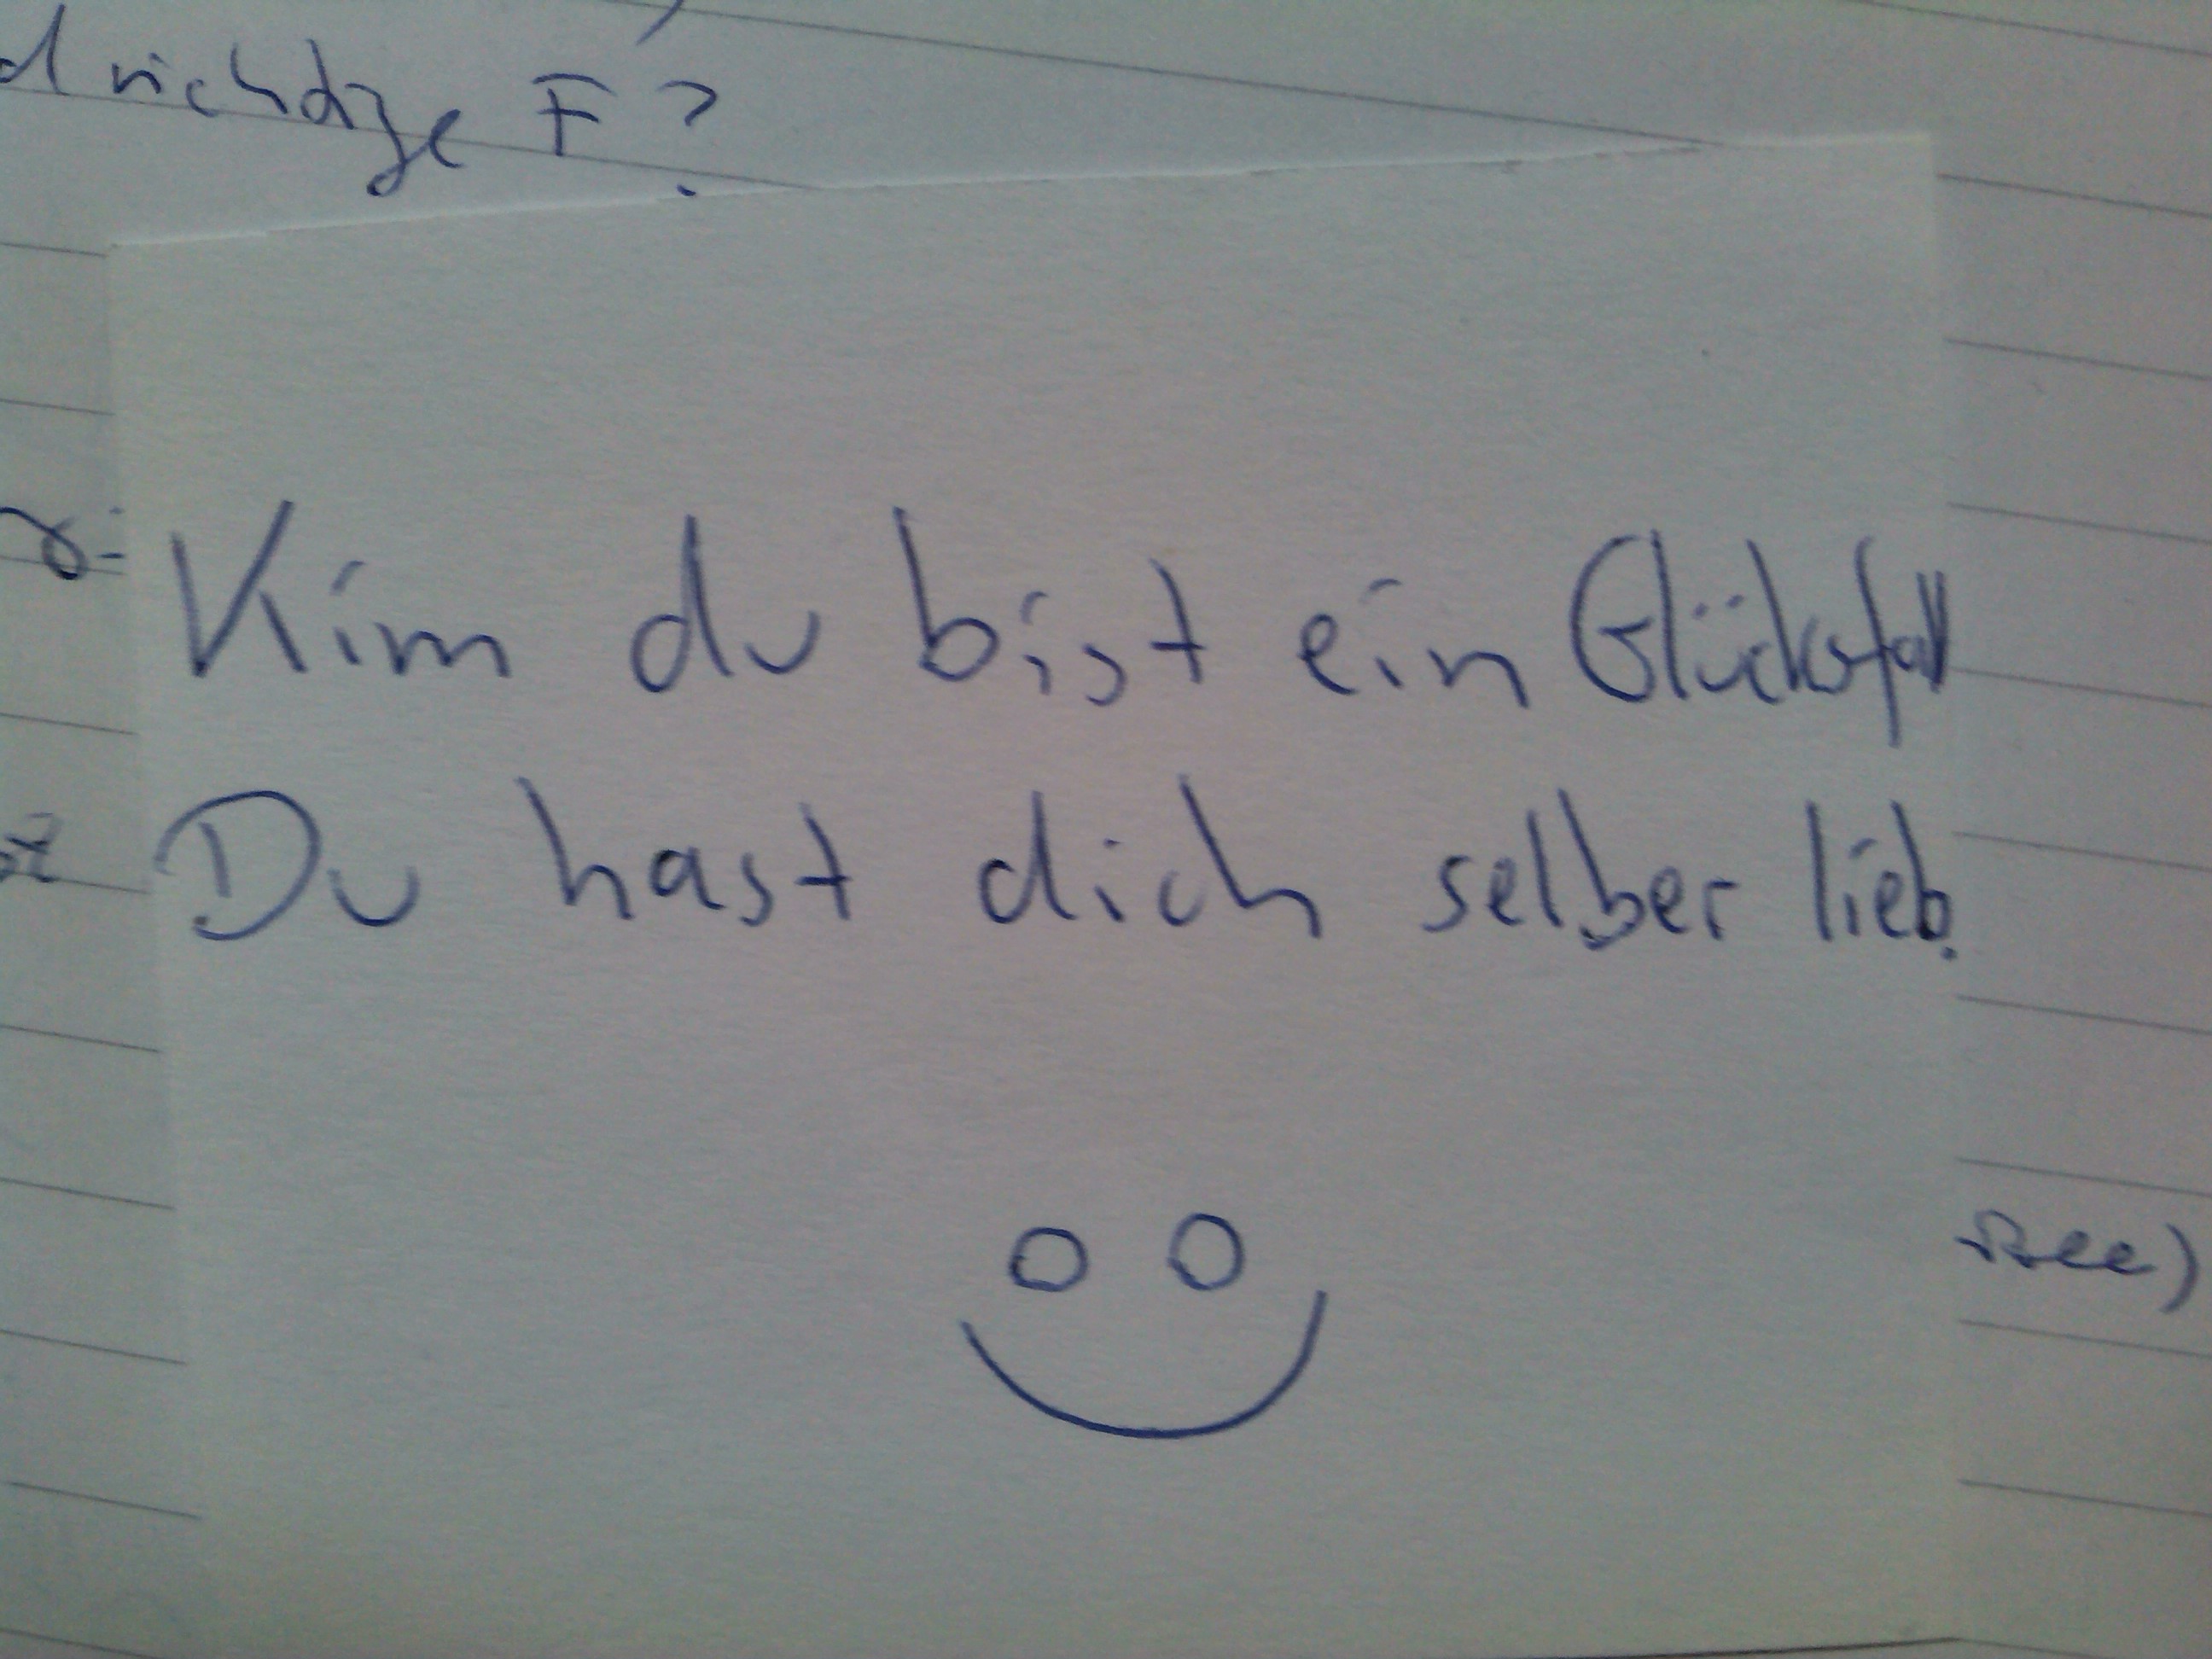 richtige F?
Kim du bist ein Glücksfall
Du hast dich selber lieb.